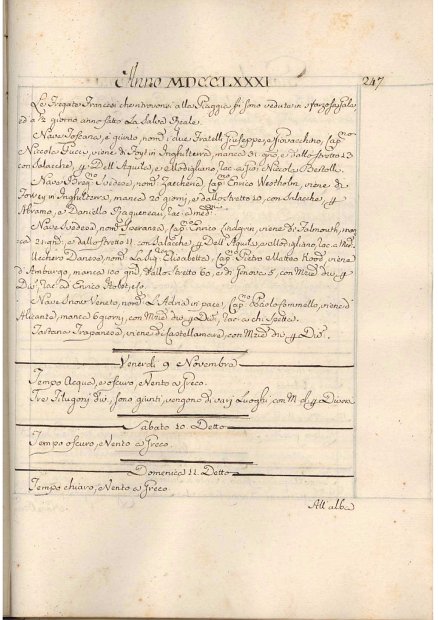 Anno MDCCLXXXI
247
Le Fregate Francesi che trovonsi alla Piaggia si sono vedute in sforzosa Gala
ed a ½ giorno anno fatto La Salva Reale.
Nave Toscana, è giunta, nomᵗᵃ i due Fratelli Giuseppe, e Giovacchino, Capⁿᵒ
Niccola Pucci, viene di Foy in Inghilterra, manca 31 gno, e dallo Stretto 13
con Salacche, Dell'Aquila, e Modigliano, rac. a Niccola Bertolli.
Nave Svedese, nomᵗᵃ Zaccheria, Capⁿᵒ Enrico Westholm, viene di
Fowey in Inghilterra, manca 20 giorni, e dallo Stretto 10, con Salacche
Abramo, e Daniello Huguenau, rac. a i medⁱ
Nave Svedese, nomᵗᵃ Speranza, Capⁿᵒ Enrico Lindgrin, viene di Falmouth, manca
21 gni, e dallo Stretto 11 con Salacche, Dell'Aquila, e Modigliano, rac. a
Ulechero Danese, nomᵗᵒ La Elisabetta, Capⁿᵒ Pietro Matteo Rood, viene
d'Amburgo, manca 100 gni, dallo Stretto 60, e di Genova 5, con Mzie dⁱᵛ
Divⁱ rac. ad Enrico
Nave Snow Veneto, nomᵗᵒ L'Adria in pace, Capⁿᵒ Paolo Sommello, viene d'
Alicante, manca 6 giorni, con Mzie dⁱᵛ Divⁱ, rac. a chi Spetta.
Tartana Trapanese, viene di Castellamare, con Mzie dⁱᵛ Divⁱ.
Venerdì 9 Novembre
Tempo Acqua, e oscuro, e Vento a Greco.
Tre Filugoni divⁱ, sono giunti, vengono di varj Luoghi, con M. d. Diversi
Sabato 10 Detto
Tempo oscuro, e Vento a Greco.
Domenica 11 Detto
Tempo chiaro, e Vento a Greco
All'alba